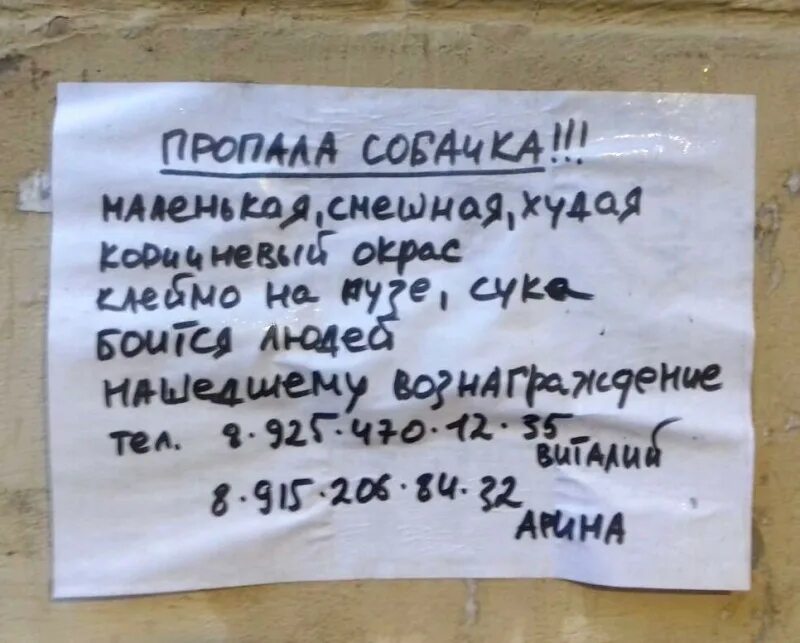 ПРОПАЛА СОБАЧКА!!!
маленькая, смешная, худая
коричневый окрас
клеймо на пузе, сука
боится людей
нашедшему вознаграждение
тел. 8·925·470·12·35
ВИТАЛИЙ
8·915·206·84·32
АРИНА